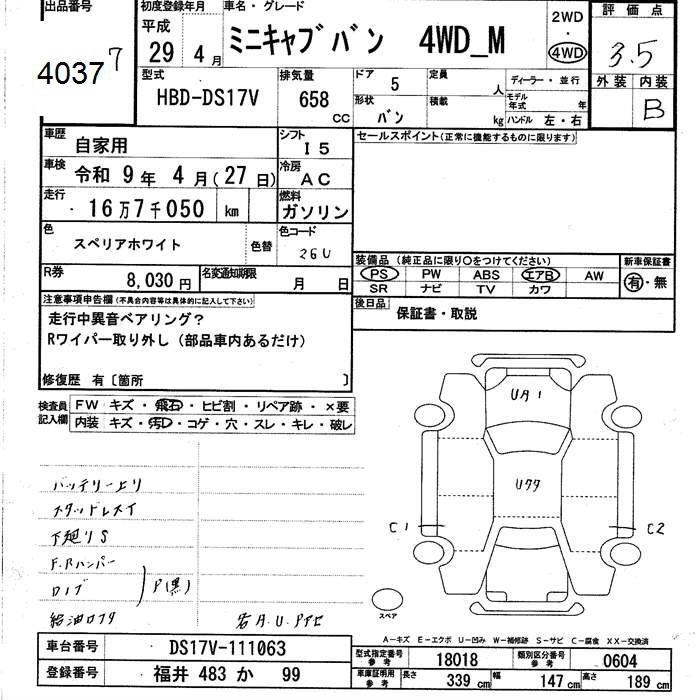 出品番号
4037
7
初度登録年月
平成
29 4月
車名・グレード
ミニキャブバン 4WD_M
2WD
・
4WD
評価点
3.5
外装 内装
B
型式
HBD-DS17V
排気量
658
CC
ドア
5
定員
人
形状
バン
積載
kg
ディーラー・並行
モデル年式 年
ハンドル 左・右
車歴
自家用
シフト
I5
セールスポイント(正常に機能するものに限ります)
車検
令和 9年 4月(27日)
冷房
AC
走行
16万7千050 km
燃料
ガソリン
色
スペリアホワイト
色替
色コード
26U
装備品(純正品に限り〇をつけてください)
新車保証書
PS PW ABS エアB AW
SR ナビ TV カワ
有・無
R券
8,030円
名変通知期限
月 日
後日品
保証書・取説
注意事項申告欄(不具合内容等は具体的に記入して下さい)
走行中異音ベアリング?
Rワイパー取り外し(部品車内あるだけ)
修復歴 有〔箇所 〕
検査員記入欄
FW キズ・飛石・ヒビ割・リペア跡・×要
内装 キズ・汚れ・コゲ・穴・スレ・キレ・破レ
UA1
U77
C1
C2
バッテリー上り
スタッドレスイ
下廻りS
F.Rバンパー
ロノブ
P(黒)
スペア
A-キズ E-エクボ U-凹み W-補修跡 S-サビ C-腐食 XX-交換済
車台番号
DS17V-111063
登録番号
福井 483 か 99
型式指定番号 参考
18018
類別区分番号 参考
0604
車庫証明用 参考
長さ 339 cm 幅 147 cm 高さ 189 cm